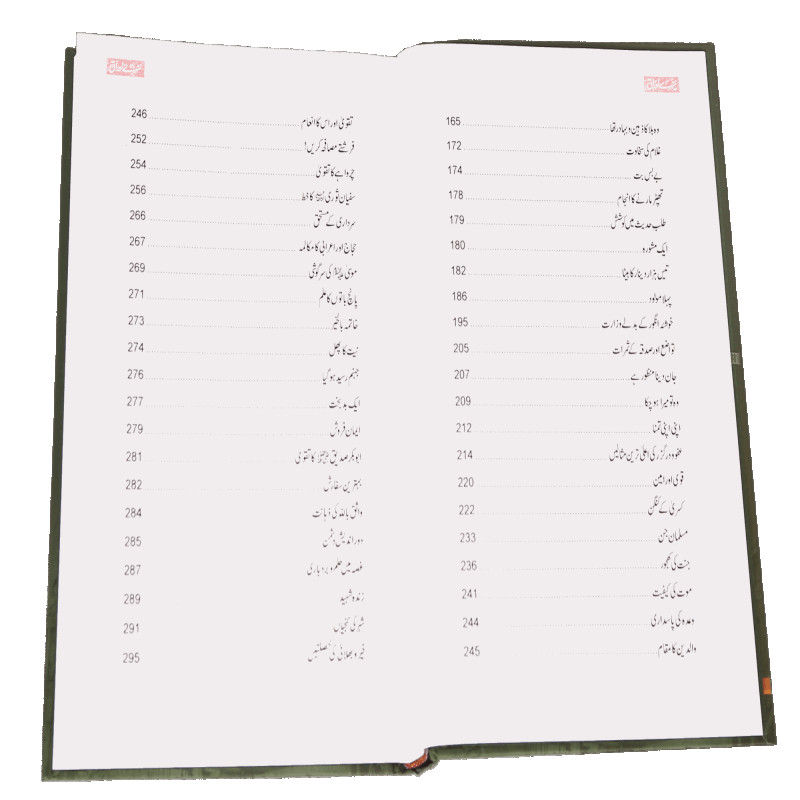 وہ بلا کا ذہین و بہادر تھا 165
غلام کی سخاوت 172
بے بس بت 174
تھپڑ مارنے کا انجام 178
طلب حدیث میں کوشش 179
ایک مشورہ 180
تیس ہزار دینار کا بیٹا 182
پہلا مولود 186
خوشہ انگور کے بدلے وزارت 195
تواضع اور صدقہ کے ثمرات 205
جان دینا منظور ہے 207
وہ تو میرا ہو چکا 209
اپنی اپنی تمنا 212
عفو و درگزر کی اعلیٰ ترین مثالیں 214
قوی اور امین 220
کسریٰ کے کنگن 222
مسلمان جن 233
جنت کی کھجور 236
موت کی کیفیت 241
وعدہ کی پاسداری 244
والدین کا مقام 245
تقویٰ اور اس کا انعام 246
فرشتے مصافحہ کریں! 252
چرواہے کا تقویٰ 254
سفیان ثوری کا خط 256
سرداری کے مستحق 266
حجاج اور اعرابی کا مکالمہ 267
موسیٰ کی سرگوشی 269
پانچ باتوں کا علم 271
خاتمہ بالخیر 273
نیت کا پھل 274
جہنم رسید ہو گیا 276
ایک بد بخت 277
ایمان فروش 279
ابوبکر صدیق کا تقویٰ 281
بہترین سفارش 282
واثق باللہ کی ذہانت 284
دور اندیش دشمن 285
غصہ میں حلم و بردباری 287
زندہ شہید 289
شہر کی کنجیاں 291
خیر و بھلائی کی خصلتیں 295